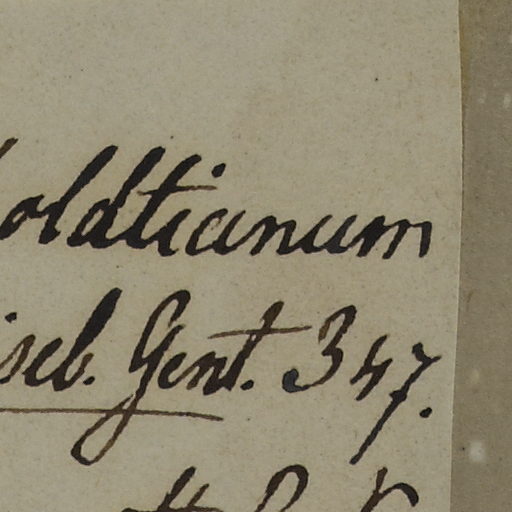 oldtianum
iseb. Gent. 347.